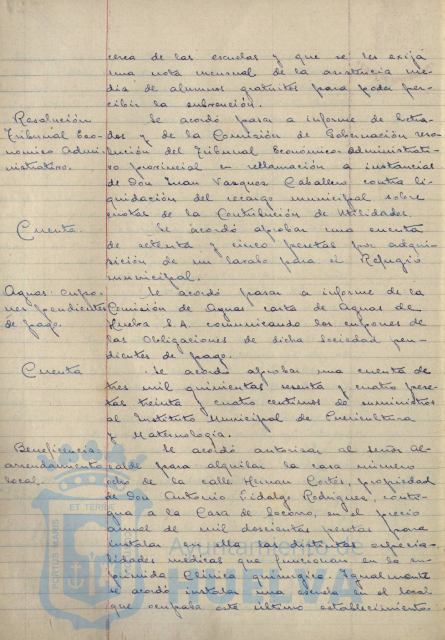 cerca de las escuelas y que se les exija
una nota mensual de la asistencia me-
dia de alumnos gratuitos para poder per-
cibir la subvención.
Resolución
Tribunal Eco-
nómico Admi-
nistrativo.
Se acordó pasar a informe de Letra-
dos y de la Comisión de Gobernación reso-
lución del Tribunal Económico-Administrati-
vo provincial en reclamación a instancias
de Don Juan Vazquez Caballero contra li-
quidación del recargo municipal sobre
cuotas de la Contribución de Utilidades.
Cuenta.
Se acordó aprobar una cuenta
de setenta y cinco pesetas por adqui-
sición de un lavabo para el Refugio
municipal.
Aguas: cupo-
nes pendientes
de pago.
Se acordó pasar a informe de la
Comisión de Aguas carta de Aguas de
Huelva S.A. comunicando los cupones de
las Obligaciones de dicha Sociedad pen-
dientes de pago.
Cuenta
Se acordó aprobar una cuenta de
tres mil quinientas sesenta y cuatro pese-
tas treinta y cuatro centimos de suministros
al Instituto Municipal de Puericultura
y Maternología.
Beneficencia:
arrendamiento
local.
Se acordó autorizar al señor Al-
calde para alquilar la casa número
ocho de la calle Hernan Cortés, propiedad
de Don Antonio Fidalgo Rodriguez, conti-
gua a la Casa de Socorro, en el precio
anual de mil doscientas pesetas para
instalar en ella las distintas especia-
lidades médicas que funcionan en la su-
primida Clínica quirurgica. Igualmente
se acordó instalar una escuela en el local
que ocupaba este último establecimiento.
PORTUS MARIS
ET TERRAE
Ayuntamiento de
HUELVA